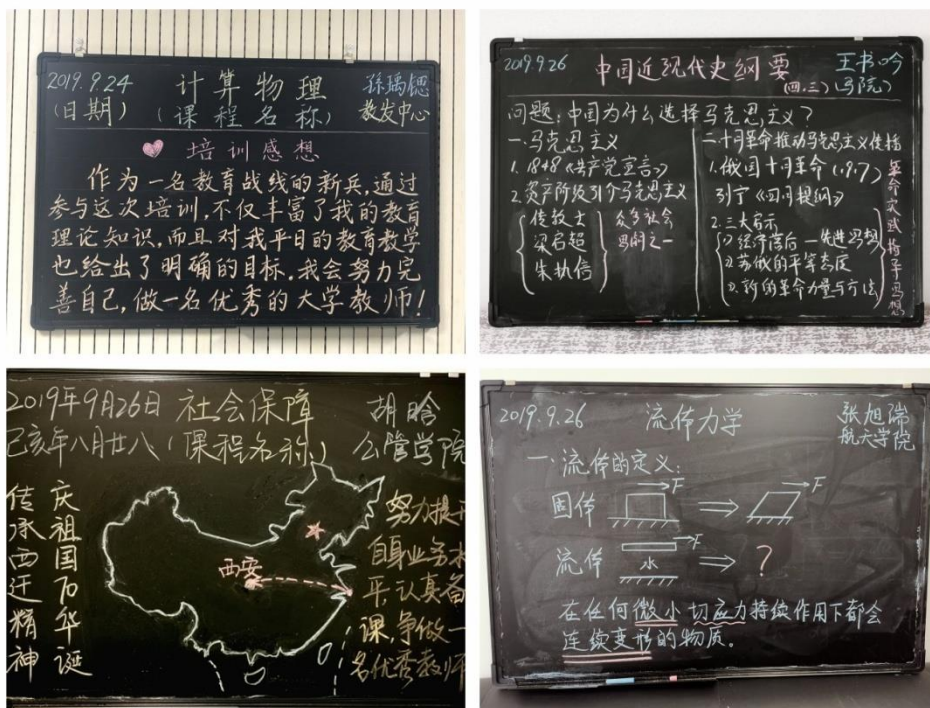 2019.9.24 计算物理 孫瑀锶
(日期) (课程名称) 教发中心
培训感想
作为一名教育战线的新兵,通过
参与这次培训,不仅丰富了我的教育
理论知识,而且对我平日的教育教学
也给出了明确的目标。我会努力完
善自己,做一名优秀的大学教师!
2019.9.26 中国近现代史纲要 王书吟
(四.三) (马院)
问题:中国为什么选择马克思主义?
一.马克思主义
1. 1848《共产党宣言》
2. 资产阶级引介马克思主义
传教士
梁启超
朱执信
众多社会
思潮之一
二.十月革命推动马克思主义传播
1.俄国十月革命(1917)
列宁《四月提纲》
2.三大启示
(1)经济落后—先进思想
(2)苏俄的平等态度
(3)新的革命力量与方法
革命实践指导思想
2019年9月26日 社会保障 胡晗
己亥年八月廿八 (课程名称) 公管学院
庆祖国万华诞
传承西迁精神
西安
努力提升
自身业务水
平,认真备
课,争做一
名优秀教师
2019.9.26 流体力学 张旭瑞
航天学院
一.流体的定义:
固体 F ⇒ F
流体 水 F ⇒ ?
在任何微小切应力持续作用下都会
连续变形的物质。